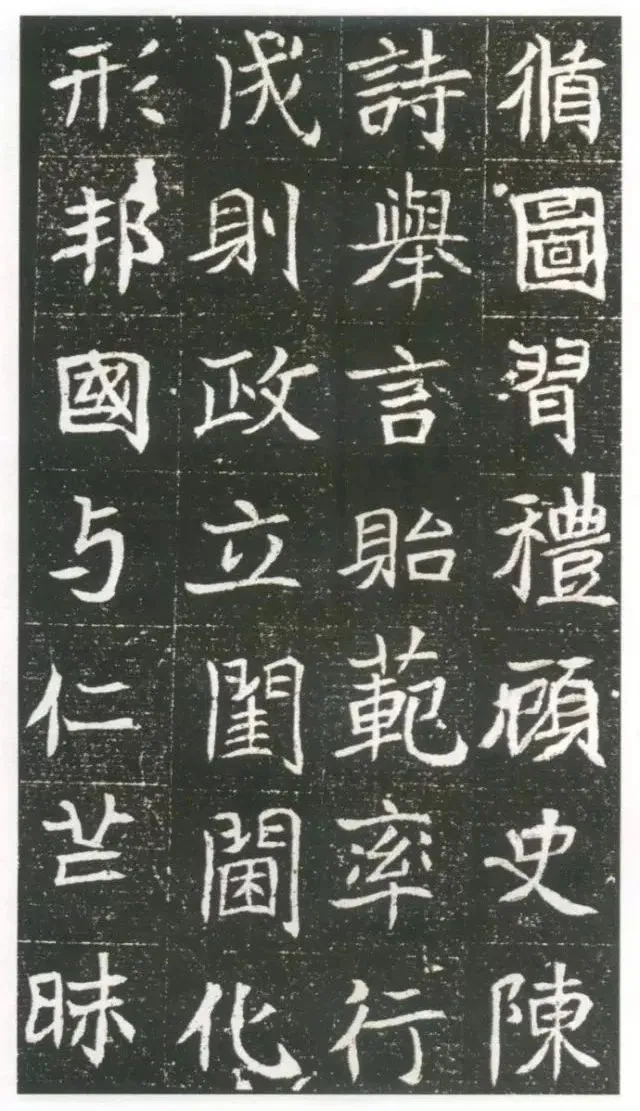 循圖習禮顧史陳
詩舉言貽範率行
成則政立閨閫化
形邦國与仁芒昧